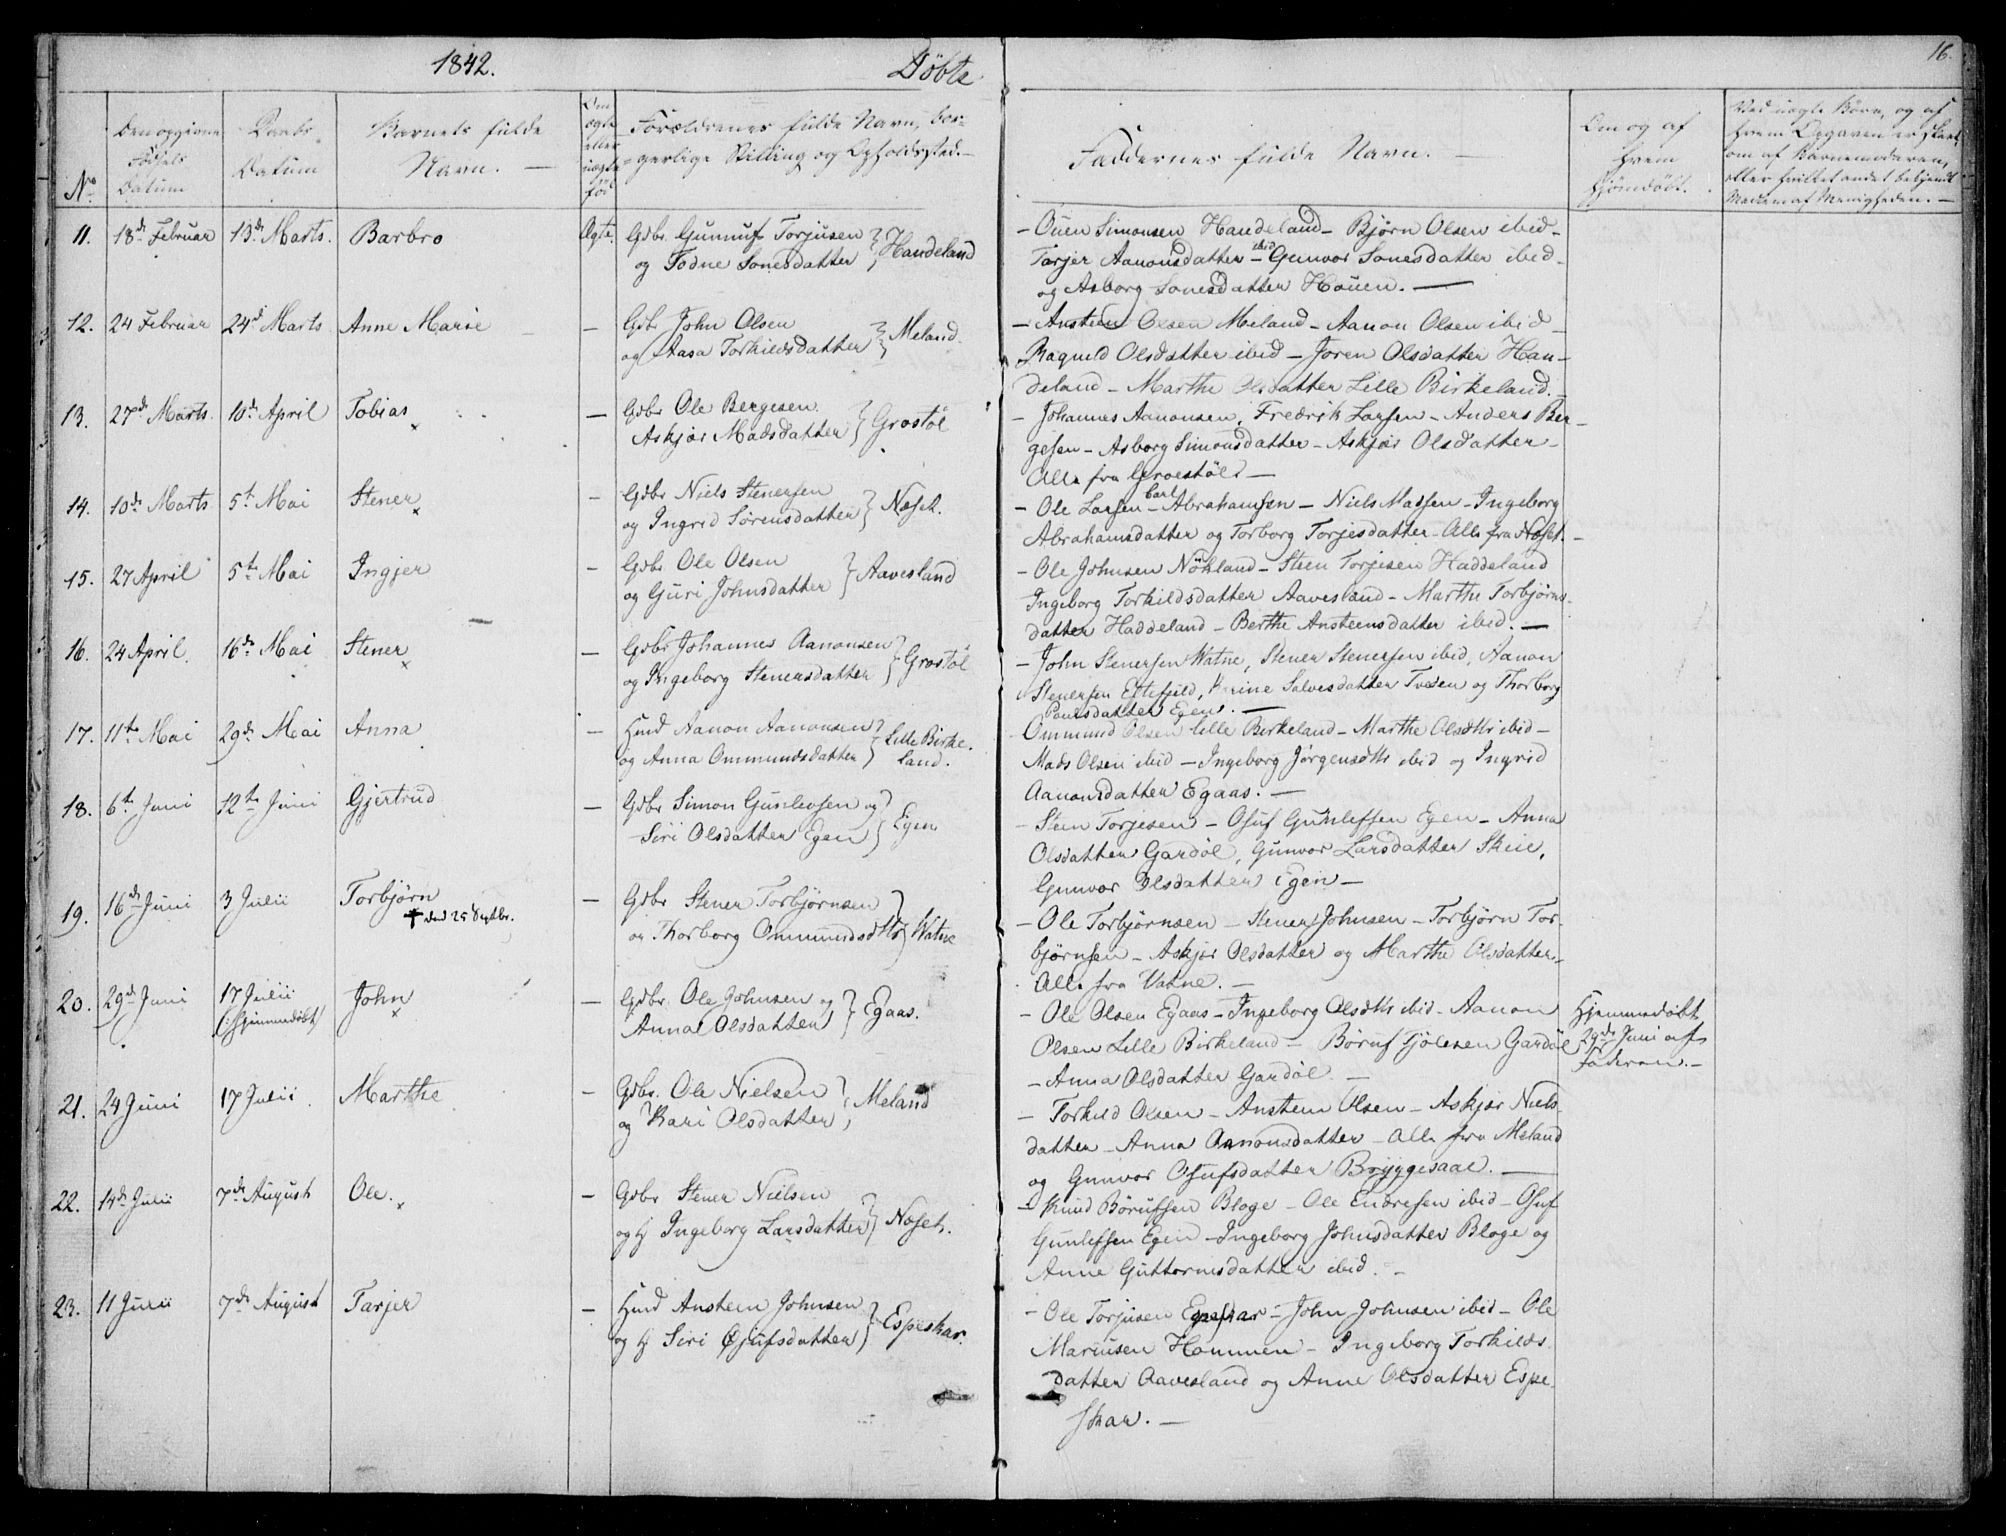 1842.
Döbte
16.
No
Den opgivne Fødsels Datum
Daabs Datum
Barnets fulde Navn. —
Om ægte eller uægte fød
Forældrenes fulde Navn, bor-
=gerlige Stilling og Opholdssted. —
Faddernes fulde Navn. —
Om og af hvem hjemdöbt.
Ved uægte Börn, og af
hvem Opgaven er skeet,
om af Barnemoderen,
eller hvilket andet bekjendt
Mand af Menigheden. —
11. 18de Februar 13de Marts. Barbro Ægte. Gdbr. Gunnuf Torjusen
og Todne Tonesdatter } Handeland
— Ouen Simonsen Handeland — Bjørn Olsen ibid —
Tarjer Aanonsdatter ibid — Gunvor Sonesdatter ibid —
og Asborg Sonesdatter Höuen. —
12. 24 Februar 24de Marts Anne Marie — Gdbr John Olsen
og Aasa Torkildsdatter } Meland.
— Ansteen Olsen Meland — Aanon Olsen ibid —
Ragnild Olsdatter ibid — Joren Olsdatter Han-
deland — Marthe Olsdatter Lille Birkeland. —
13. 27de Marts. 10de April Tobias x — Gdbr Ole Bergesen
Askjær Madsdatter } Grostöl
— Johannes Aanonsen, Fredrik Larsen — Anders Ber-
gesen — Asborg Simonsdatter — Askjær Olsdatter —
Alle fra Groestöl. —
14. 10de Marts 5te Mai Stener x — Gdbr Niels Stenersen
og Ingrid Sörensdatter } Næset.
— Ole Larsen — Carl Abrahamsen — Niels Madsen — Ingeborg
Abrahamsdatter og Torborg Torjesdatter — Alle fra Næset. —
15. 27 April 5te Mai Ingjer — Gdbr Ole Olsen
og Guri Johnsdatter } Aavesland
— Ole Johnsen Nökland — Steen Torjesen Haddeland
Ingeborg Torkildsdatter Aavesland — Marthe Torbjörns-
datter Haddeland — Berthe Ansteensdatter ibid. —
16. 24 April. 16de Mai Stener x — Gdbr Johannes Aanonsen
og Ingeborg Stenersdatter } Grostöl
— John Stenersen Watne, Stener Stenersen ibid, Aanon
Stenersen Ettefjeld, Karine Salvesdatter Tveden og Thorborg
Poulsdatter Egen. —
17. 11te Mai 29de Mai Anna — Hmd Aanon Aanonsen
og Anna Ommundsdatter } Lille Birke-
land.
Ommund Olsen Lille Birkeland — Marthe Olsdtr ibid —
Mads Olsen ibid — Ingeborg Jörgensdtr ibid og Ingrid
Aanonsdatter Egaas. —
18. 6te Juni 12te Juni Gjertrud — Gdbr Simon Gunlevsen og
Siri Olsdatter Egen } Egen
— Steen Torjesen — Osuf Gunlefsen Egen — Anna
Olsdatter Gardöl, Gunvor Larsdatter Skeie,
Gunvor Olsdatter Egen —
19. 16de Juni 3 Julii Torbjørn
† död 25 Septbr.
— Gdbr Stener Torbjörnsen
og Thorborg Ommundsdtr } Watne
— Ole Torbjörnsen — Stener Johnsen — Torbjörn Tor-
björnsen — Askjær Olsdatter og Marthe Olsdatter —
Alle fra Vatne. —
20. 29de Juni 17 Julii
(: hjemmedöbt)
John x — Gdbr. Ole Johnsen og
Anna Olsdatter } Egaas.
— Ole Olsen Egaas — Ingeborg Olsdtr ibid — Aanon
Olsen Lille Birkeland — Böruf Tjölesen Gardöl
— Anna Olsdatter Gardöl —
Hjemmedöbt
29de Juni af
Faderen. —
21. 24 Juni 17 Julii. Marthe — Gdbr. Ole Nielsen
og Kari Olsdatter } Meland
— Torkild Olsen — Ansteen Olsen — Askjær Niels-
datter — Anna Aanonsdatter — Alle fra Meland
og Gunvor Osufsdatter Bryggesaae. —
22. 14de Julii 7de August Ole. x — Gdbr Stener Nielsen
og H Ingeborg Larsdatter } Næset.
— Knud Börufsen Bloge — Ole Endresen ibid — Osuf
Gunlefsen Egen — Ingeborg Johnsdatter Bloge og
Anne Guttormsdatter ibid. —
23. 11 Julii 7de August Tarjer — Hmd Ansteen Johnsen
og H Siri Osufsdatter } Espeskar.
— Ole Torjusen Espeskar — John Johnsen ibid — Ole
Mariusen Hommen — Ingeborg Torkilds-
datter Aavesland og Anne Olsdatter Espe-
skar. —